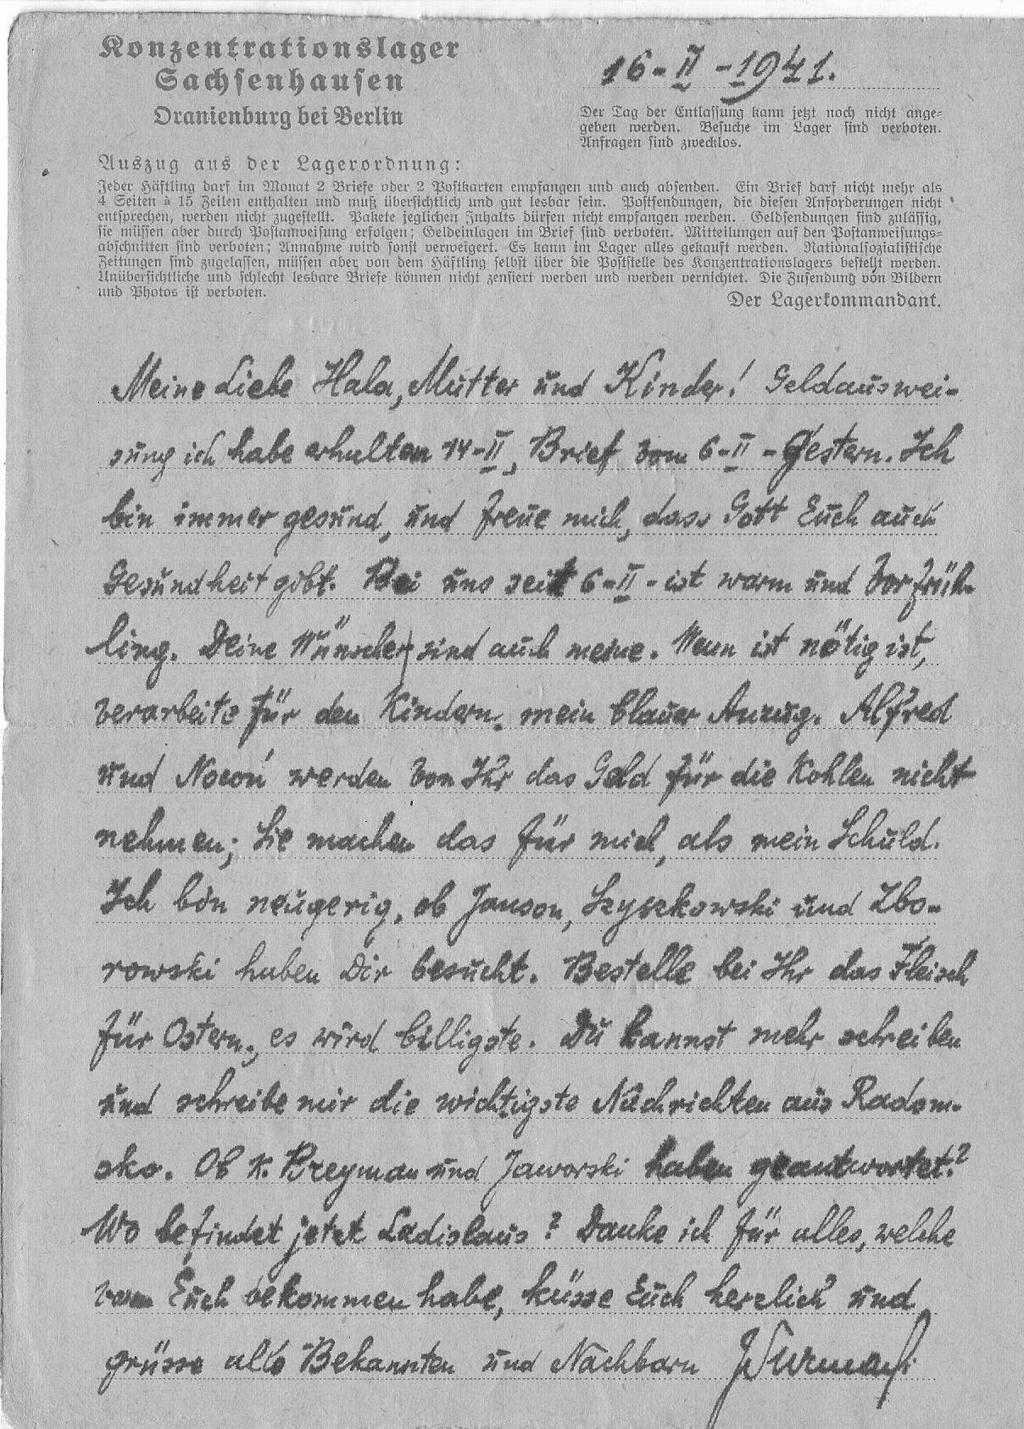 Konzentrationslager
Sachsenhausen
Oranienburg bei Berlin
16-II-1941.
Der Tag der Entlassung kann jetzt noch nicht ange-
geben werden. Besuche im Lager sind verboten.
Anfragen sind zwecklos.
Auszug aus der Lagerordnung:
Jeder Häftling darf im Monat 2 Briefe oder 2 Postkarten empfangen und auch absenden. Ein Brief darf nicht mehr als
4 Seiten à 15 Zeilen enthalten und muß übersichtlich und gut lesbar sein. Postsendungen, die diesen Anforderungen nicht
entsprechen, werden nicht zugestellt. Pakete jeglichen Inhalts dürfen nicht empfangen werden. Geldsendungen sind zulässig,
sie müssen aber durch Postanweisung erfolgen; Geldeinlagen im Brief sind verboten. Mitteilungen auf den Postanweisungs-
abschnitten sind verboten; Annahme wird sonst verweigert. Es kann im Lager alles gekauft werden. Nationalsozialistische
Zeitungen sind zugelassen, müssen aber von dem Häftling selbst über die Poststelle des Konzentrationslagers bestellt werden.
Unübersichtliche und schlecht lesbare Briefe können nicht zensiert werden und werden vernichtet. Die Zusendung von Bildern
und Photos ist verboten.
Der Lagerkommandant.
Meine Liebe Hala, Mutter und Kinder! Geldauswei-
sung ich habe erhalten 14-II, Brief vom 6-II - Gestern. Ich
bin immer gesund, und freue mich, dass Gott Euch auch
Gesundheit gibt. Bei uns seit 6-II - ist warm und Vorfrüh-
ling. Deine Wünsche sind auch meine. Wenn ist nötig ist,
verarbeite für den Kindern mein blauer Anzug. Alfred
und Nocoń werden von Ihr das Geld für die Kohlen nicht
nehmen; Sie machen das für mich, als mein Schuld.
Ich bin neugerig, ob Janson, Szyszkowski und Zbo-
rowski haben Dir besucht. Bestelle bei Ihr das Fleisch
für Ostern, es wird billigste. Du kannst mehr schreiben
und schreibe mir die wichtigste Nachrichten aus Radom-
sko. Ob K. Kreyman und Jaworski haben geantwortet?
Wo befindet jetzt Ladislaus? Danke ich für alles, welche
von Euch bekommen habe, küsse Euch herzlich und
grüsse alle Bekannten und Nachbarn